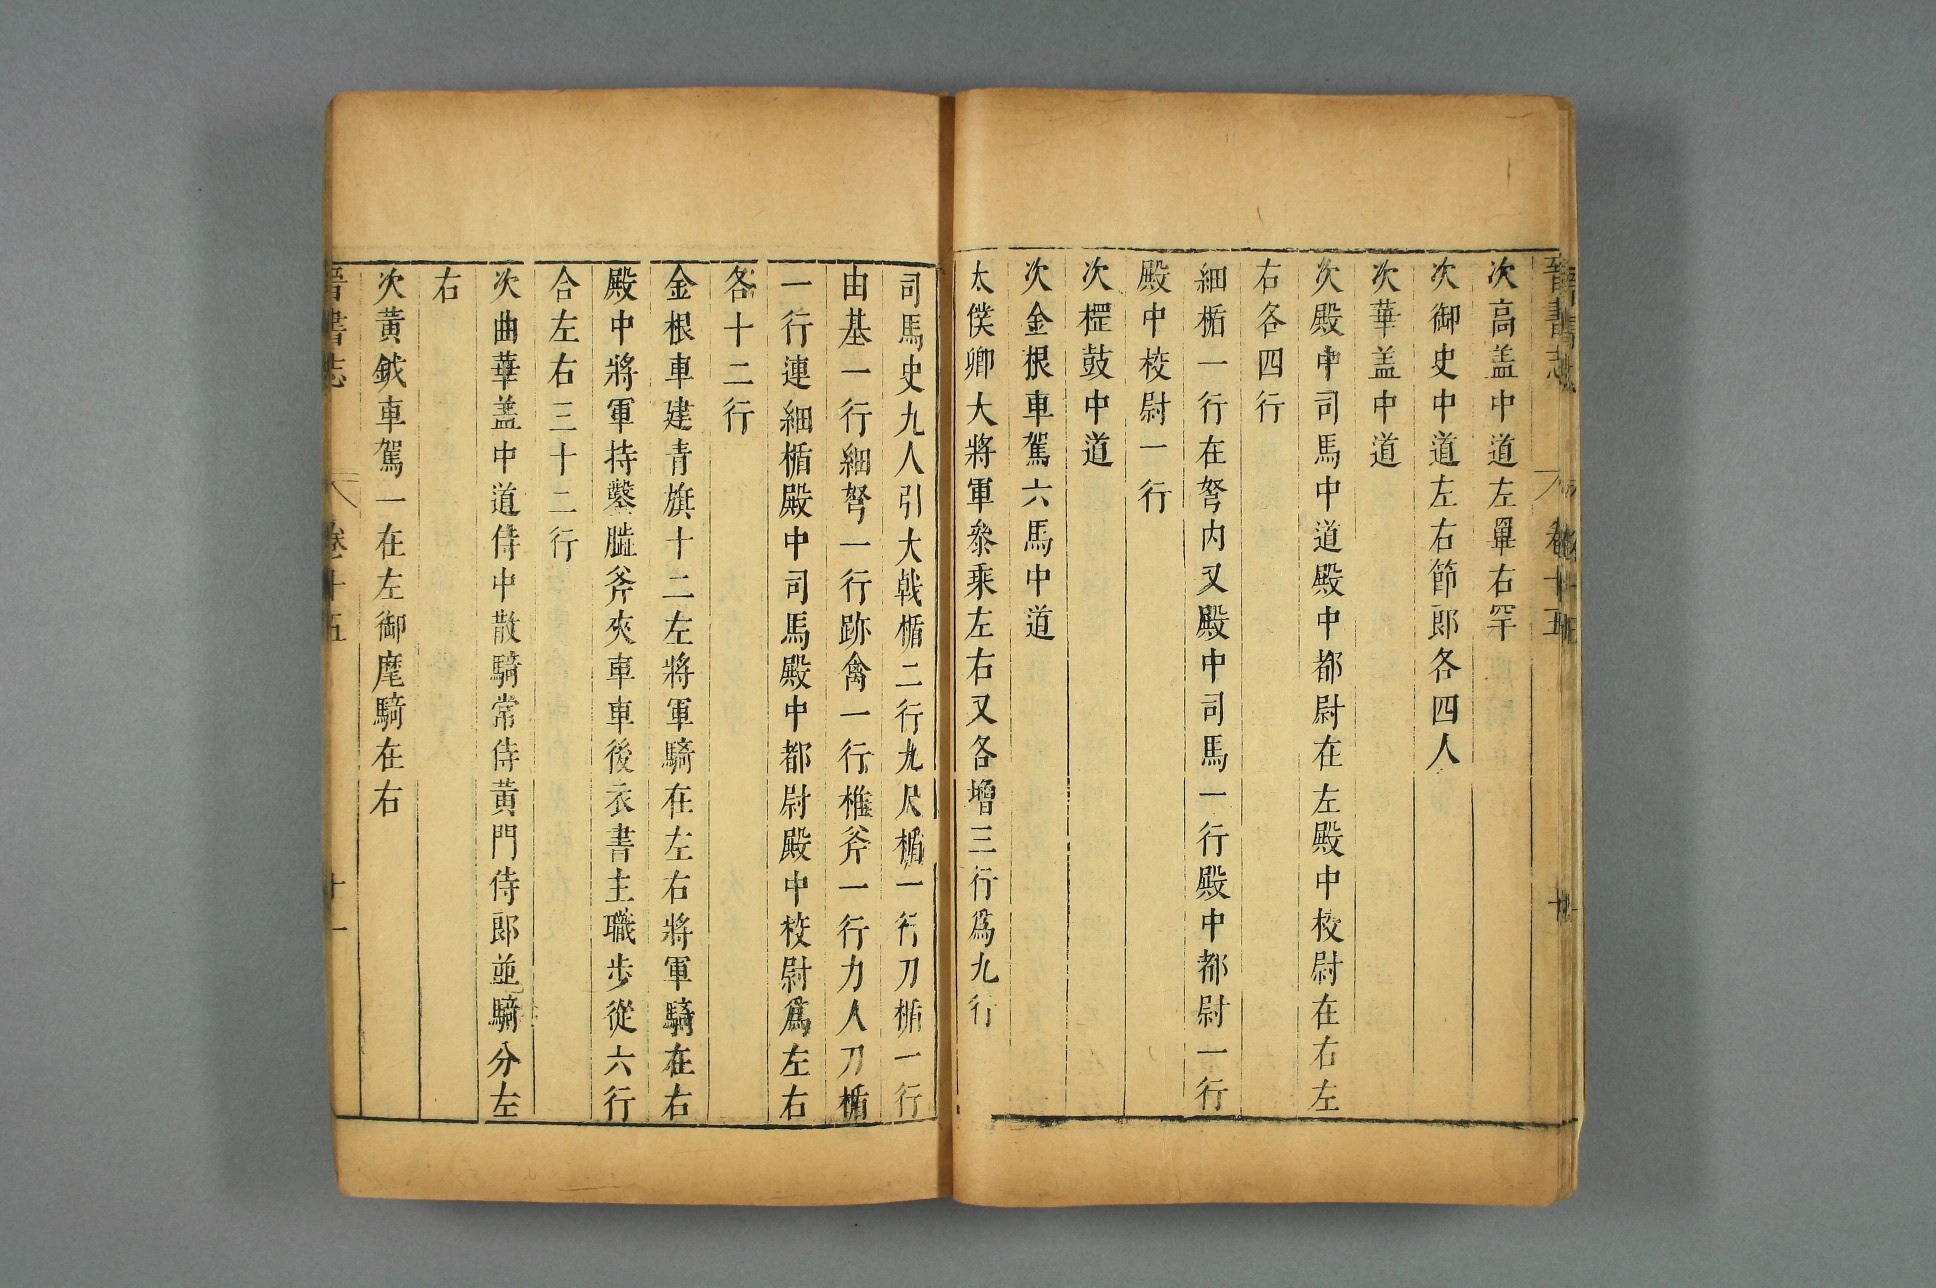 晉書志 卷十五 十
次高盖中道左罼右罕
次御史中道左右節郎各四人
次華盖中道
次殿中司馬中道殿中都尉在左殿中校尉在右左
右各四行
細楯一行在弩內又殿中司馬一行殿中都尉一行
殿中校尉一行
次㭎鼓中道
次金根車駕六馬中道
太僕卿大將軍叅乘左右又各增三行爲九行
司馬史九人引大戟楯二行九尺楯一行刀楯一行
由基一行細弩一行跡禽一行椎斧一行力人刀楯
一行連細楯殿中司馬殿中都尉殿中校尉爲左右
各十二行
金根車建青旗十二左將軍騎在左右將軍騎在右
殿中將軍持鑿腦斧夾車車後衣書主職步從六行
合左右三十二行
次曲華盖中道侍中散騎常侍黃門侍郎並騎分左
右
次黃鉞車駕一在左御麾騎在右
晉書志 卷十五 十一